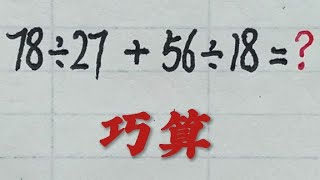 78÷27 + 56÷18 = ?
巧算